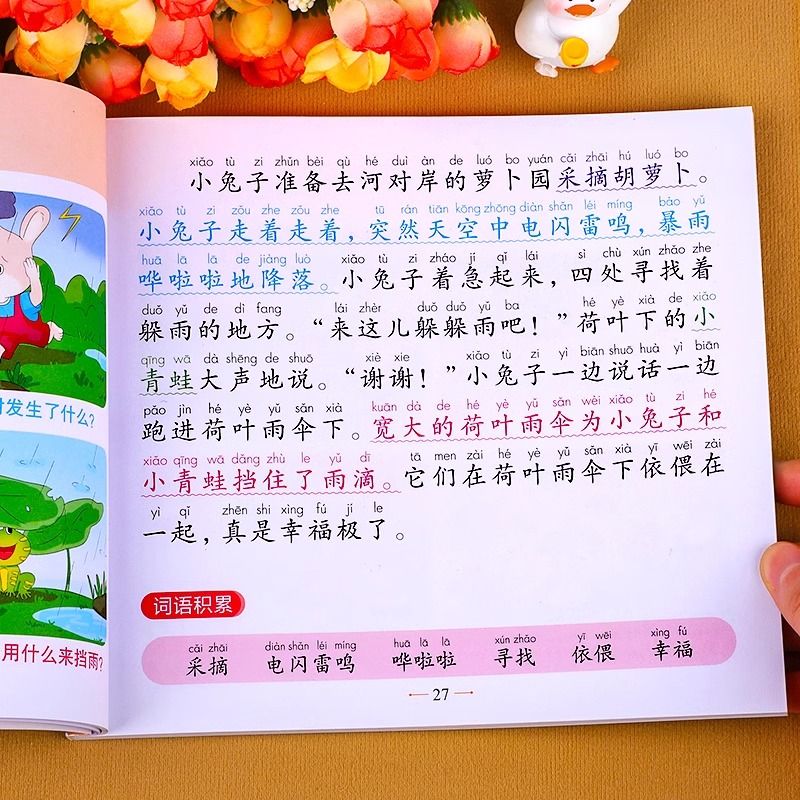 发生了什么?
用什么来挡雨?
xiǎo tù zi zhǔn bèi qù hé duì àn de luó bo yuán cǎi zhāi hú luó bo
小兔子准备去河对岸的萝卜园采摘胡萝卜。
xiǎo tù zi zǒu zhe zǒu zhe tū rán tiān kōng zhōng diàn shǎn léi míng bào yǔ
小兔子走着走着，突然天空中电闪雷鸣，暴雨
huā lā lā de jiàng luò xiǎo tù zi zháo jí qǐ lái sì chù xún zhǎo zhe
哗啦啦地降落。小兔子着急起来，四处寻找着
duǒ yǔ de dì fang lái zhèr duǒ duǒ yǔ ba hé yè xià de xiǎo
躲雨的地方。“来这儿躲躲雨吧！”荷叶下的小
qīng wā dà shēng de shuō xiè xie xiǎo tù zi yì biān shuō huà yì biān
青蛙大声地说。“谢谢！”小兔子一边说话一边
pǎo jìn hé yè yǔ sǎn xià kuān dà de hé yè yǔ sǎn wèi xiǎo tù zi hé
跑进荷叶雨伞下。宽大的荷叶雨伞为小兔子和
xiǎo qīng wā dǎng zhù le yǔ dī tā men zài hé yè yǔ sǎn xià yī wēi zài
小青蛙挡住了雨滴。它们在荷叶雨伞下依偎在
yì qǐ zhēn shi xìng fú jí le
一起，真是幸福极了。
词语积累
cǎi zhāi diàn shǎn léi míng huā lā lā xún zhǎo yī wēi xìng fú
采摘 电闪雷鸣 哗啦啦 寻找 依偎 幸福
27